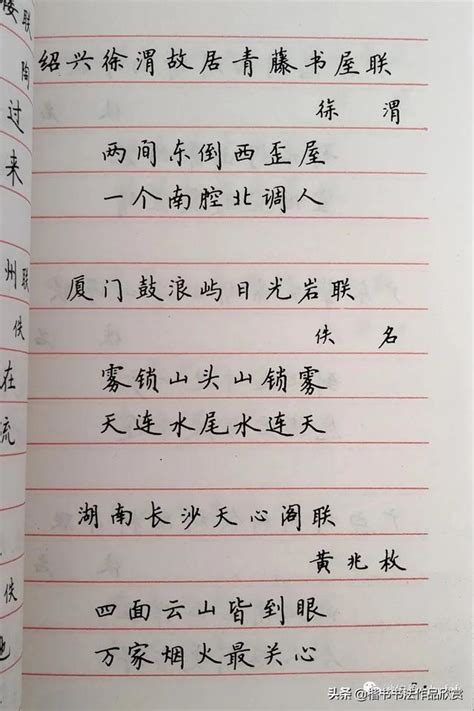 绍兴徐渭故居青藤书屋联
徐渭
两间东倒西歪屋
一个南腔北调人
厦门鼓浪屿日光岩联
佚名
雾锁山头山锁雾
天连水尾水连天
湖南长沙天心阁联
黄兆枚
四面云山皆到眼
万家烟火最关心
联
陶
过
来
州联
佚
在
流
佚
头条@楷书书法作品欣赏